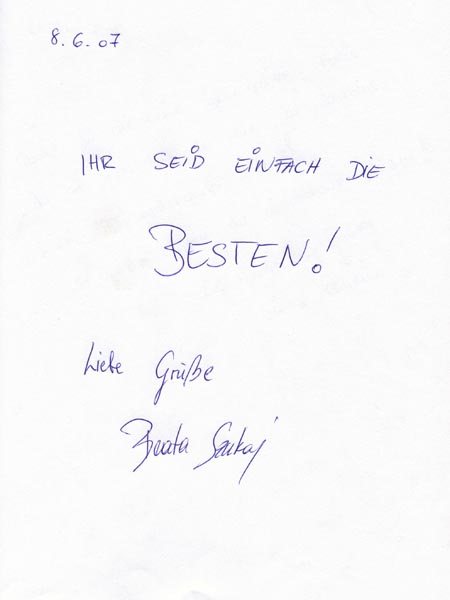 8.6.07
IHR SEID EINFACH DIE
BESTEN!
Liebe Grüße
Beata